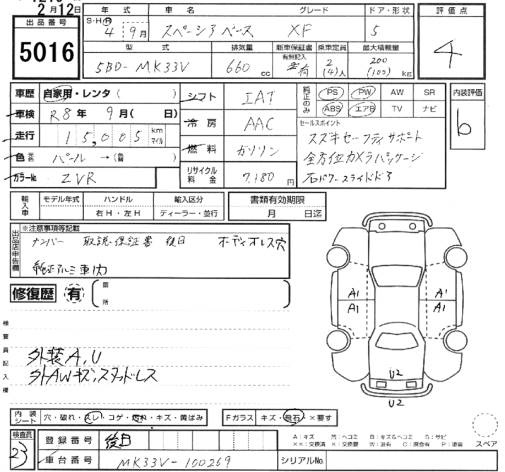 2月12日
出品番号
5016
年式 車名 グレード ドア・形状
S・H・R 4年 9月 スペーシアベース XF 5
型式 排気量 新車保証書 有無記入 乗車定員 最大積載量
5BD-MK33V 660 cc 2(4)人 200(100) kg
評価点
4
車歴 自家用・レンタ( )
車検 R8年 9月( 日)
走行 15,005 km マイル
色 パール→( )
カラーNo. ZVR
シフト IAT
冷房 AAC
燃料 ガソリン
リサイクル料金 7,180円
純正のみ PS PW AW SR
ABS エアB TV ナビ
セールスポイント
スズキセーフティサポート
全方位カメラパッケージ
右パワースライドドア
内装評価
b
輸入車 モデル年式 ハンドル 輸入区分
右H・左H ディーラー・並行
書類有効期限
月 日迄
出品店申告欄
※注意事項等記載
ナンバー 取説・保証書 後日 ボディオレス穴
純正アルミ車内
修復歴 有 箇所
検査員記入欄
外装A,U
外AWキズ,スタッドレス
A1 A1
A1 A1
U2
U2
内装シート 穴・破れ・スレ・コゲ・汚れ・キズ・黄ばみ
Fガラス キズ・飛石・×要す
スペア
検査員
23
登録番号 後日
車台番号 MK33V-100269
シリアルNo.